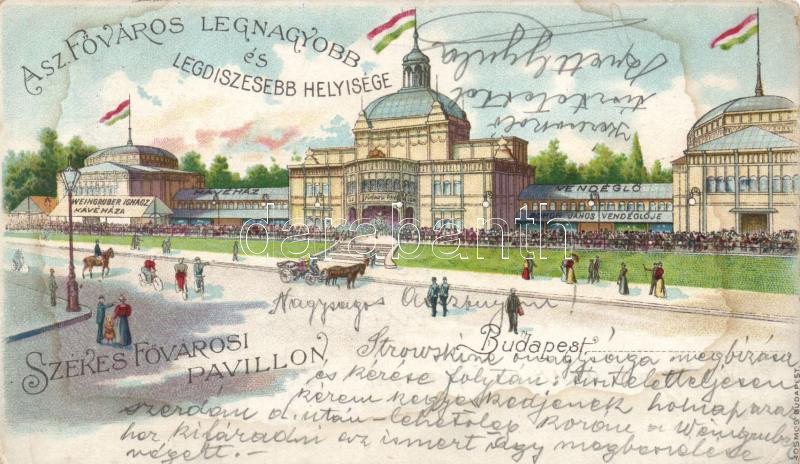 A SZ. FŐVÁROS LEGNAGYOBB
és
LEGDISZESEBB HELYISÉGE
WEINGRUBER IGNÁCZ
KÁVÉHÁZA
KÁVÉHÁZ
VENDÉGLŐ
JÁNOS VENDÉGLŐJE
darabanth
Nagyságos Asszonyom!
Budapest
SZÉKES FŐVÁROSI
PAVILLON
Strowskiné önagysága megbizása
és kérése folytán: tiszteletteljesen
kérem kegyeskedjenek holnap azaz
szerdán d. után lehetőleg korán a Weingruber
hoz kifáradni az ismert ügy megbeszélése
végett.
KOSMOS BUDAPEST